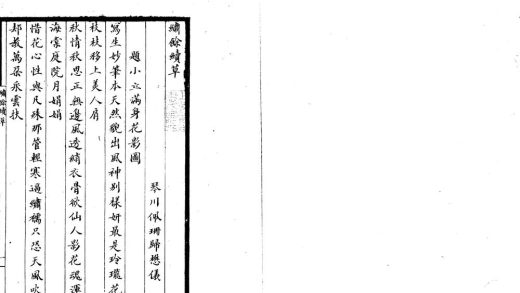 繡餘續草
琴川佩珊歸懋儀
題小立滿身花影圖
寫生妙筆本天然貌出風神別樣妍最是玲瓏花
枝枝移上美人肩
秋情秋思正無邊風透綃衣骨欲仙人影花魂渾
海棠庭院月娟娟
惜花心性與凡殊那管輕寒逼繡襦只恐天風吹
却教萬朵采雲扶
繡餘續草